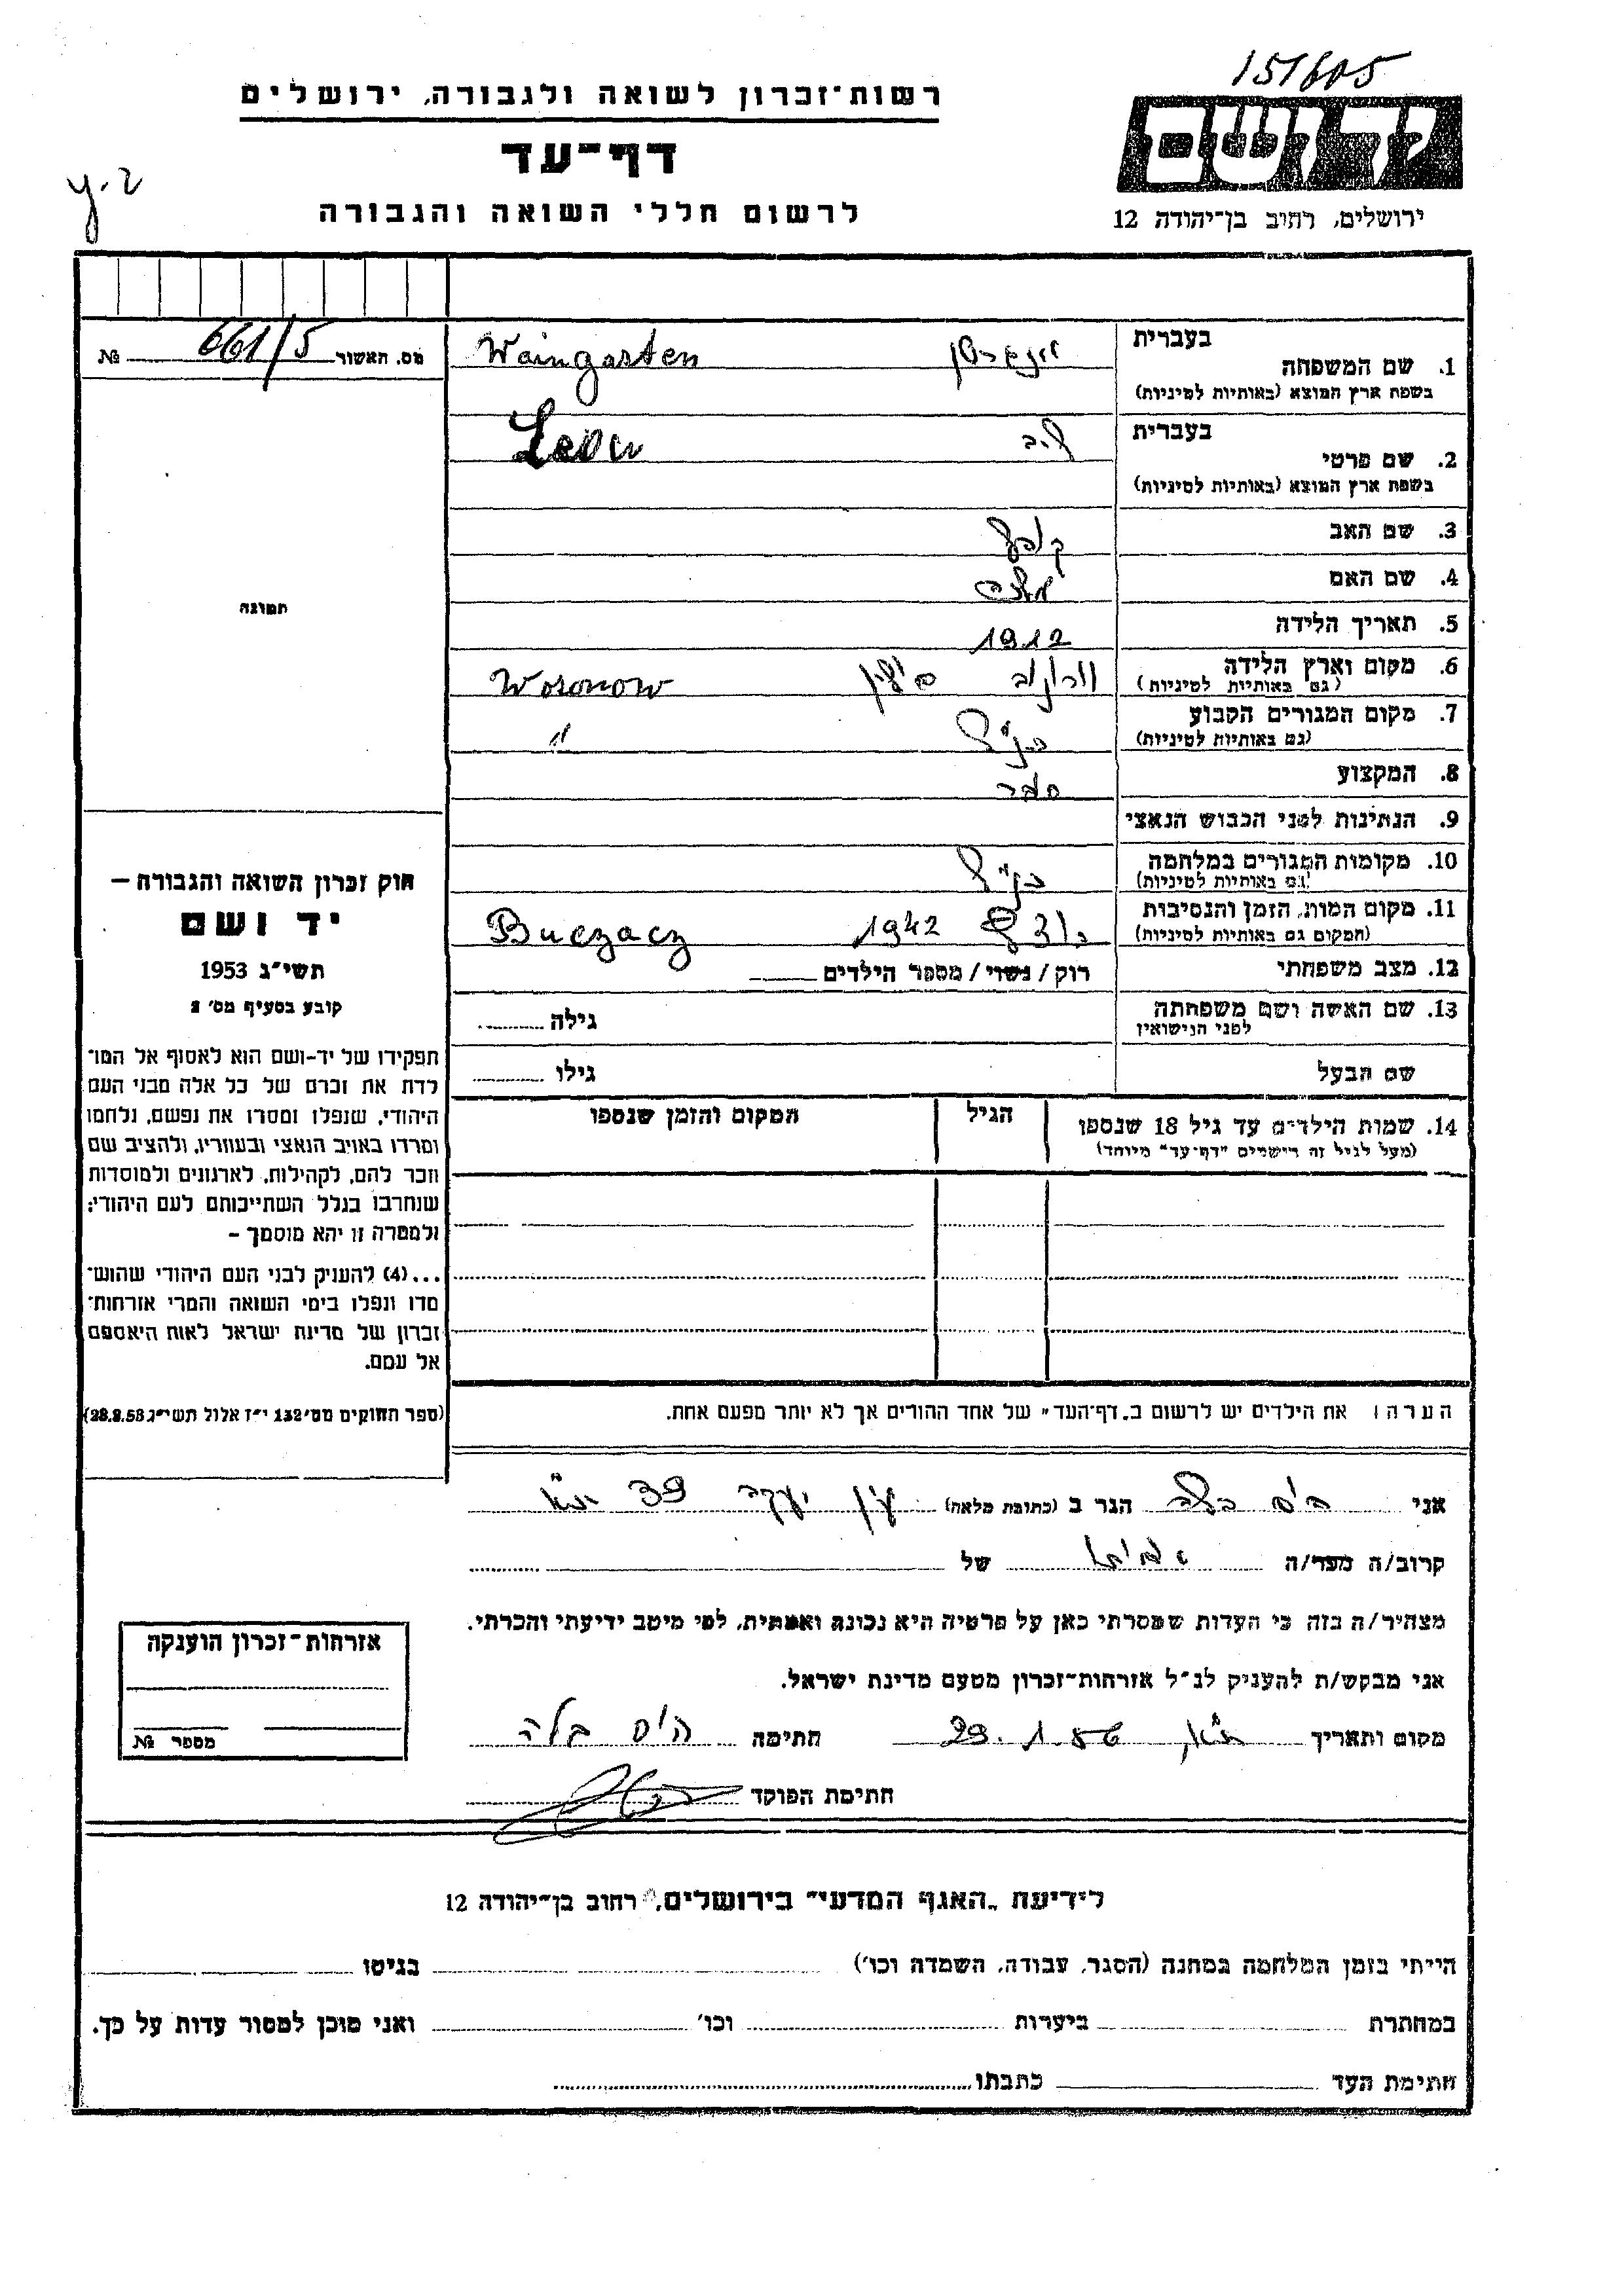 151605
רשות־זכרון לשואה ולגבורה, ירושלים
יד ושם
דף־עד
לרשום חללי השואה והגבורה
ירושלים, רחוב בן־יהודה 12
מס. האשור 661/5 №
בעברית
1. שם המשפחה Waingarten
בשפת ארץ המוצא (באותיות לטיניות)
בעברית
2. שם פרטי ליב Leon
בשפת ארץ המוצא (באותיות לטיניות)
3. שם האב
4. שם האם
5. תאריך הלידה 1912
6. מקום וארץ הלידה וורונוב פולין Woronow
(גם באותיות לטיניות)
7. מקום המגורים הקבוע כנ"ל "
(גם באותיות לטיניות)
8. המקצוע ספר
9. הנתינות לפני הכבוש הנאצי
10. מקומות המגורים במלחמה כנ"ל
(גם באותיות לטיניות)
11. מקום המות, הזמן והנסיבות 1942 Buczacz
(המקום גם באותיות לטיניות)
12. מצב משפחתי רוק / נשוי / מספר הילדים
13. שם האשה ושם משפחתה גילה
לפני הנישואין
שם הבעל גילו
14. שמות הילדים עד גיל 18 שנספו הגיל המקום והזמן שנספו
(מעל לגיל זה רישמים "דף־עד" מיוחד)
תמונה
חוק זכרון השואה והגבורה –
יד ושם
תשי"ג 1953
קובע בסעיף מס' 2
תפקידו של יד-ושם הוא לאסוף אל המו־
לדת את זכרם של כל אלה מבני העם
היהודי, שנפלו ומסרו את נפשם, נלחמו
ומרדו באויב הנאצי ובעוזריו, ולהציב שם
וזכר להם, לקהילות, לארגונים ולמוסדות
שנחרבו בגלל השתייכותם לעם היהודי;
ולמטרה זו יהא מוסמך –
...(4) להעניק לבני העם היהודי שהוש־
מדו ונפלו בימי השואה והמרי אזרחות־
זכרון של מדינת ישראל לאות היאספם
אל עמם.
(ספר החוקים מס' 132 י"ז אלול תשי"ג 28.8.53)
הערה: את הילדים יש לרשום ב„דף־העד" של אחד ההורים אך לא יותר מפעם אחת.
אני היס בלה הגר ב (כתובת מלאה) עין יעקב 39
קרוב/ה מכר/ה של
מצהיר/ה בזה כי העדות שמסרתי כאן על פרטיה היא נכונה ואמתית, לפי מיטב ידיעתי והכרתי.
אני מבקש/ת להעניק לנ"ל אזרחות־זכרון מטעם מדינת ישראל.
מקום ותאריך חתימה היס בלה
חתימת הפוקד
אזרחות־זכרון הוענקה
מספר №
לידיעת „האגף המדעי" בירושלים, רחוב בן־יהודה 12
הייתי בזמן המלחמה במחנה (הסגר, עבודה, השמדה וכו') בגיטו
במחתרת ביערות וכו' ואני מוכן למסור עדות על כך.
חתימת העד כתבתו